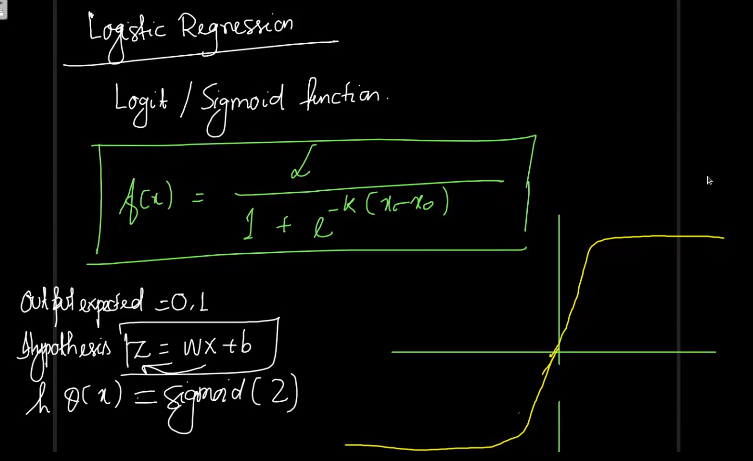 Logistic Regression
Logit / Sigmoid function.
f(x) = L / 1 + e^-k(x-x0)
Output expected = 0,1
Hypothesis Z = WX + b
h θ(x) = Sigmoid(Z)